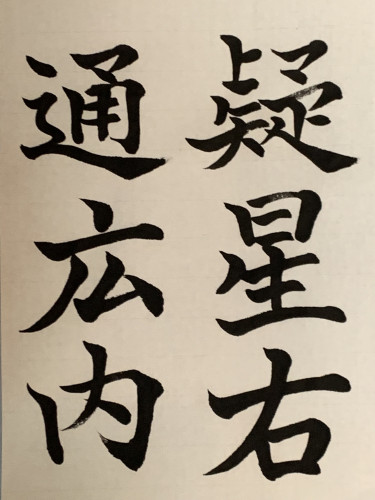 疑星右
通広内